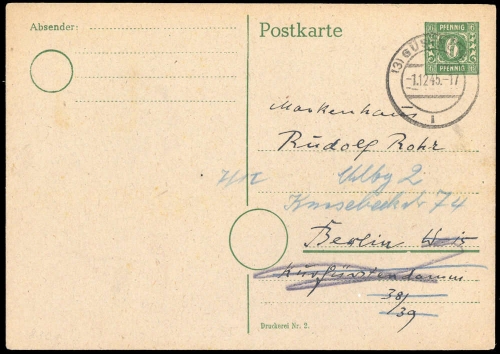 Absender:
Postkarte
PFENNIG
6
PFENNIG
(3) GÜS
-1.12.45.-17
Markenhaus
Rudolf Rohr
Chlbg 2
Knesebeckstr 74
Berlin
Kurfürstendamm
38/
39
Druckerei Nr. 2.